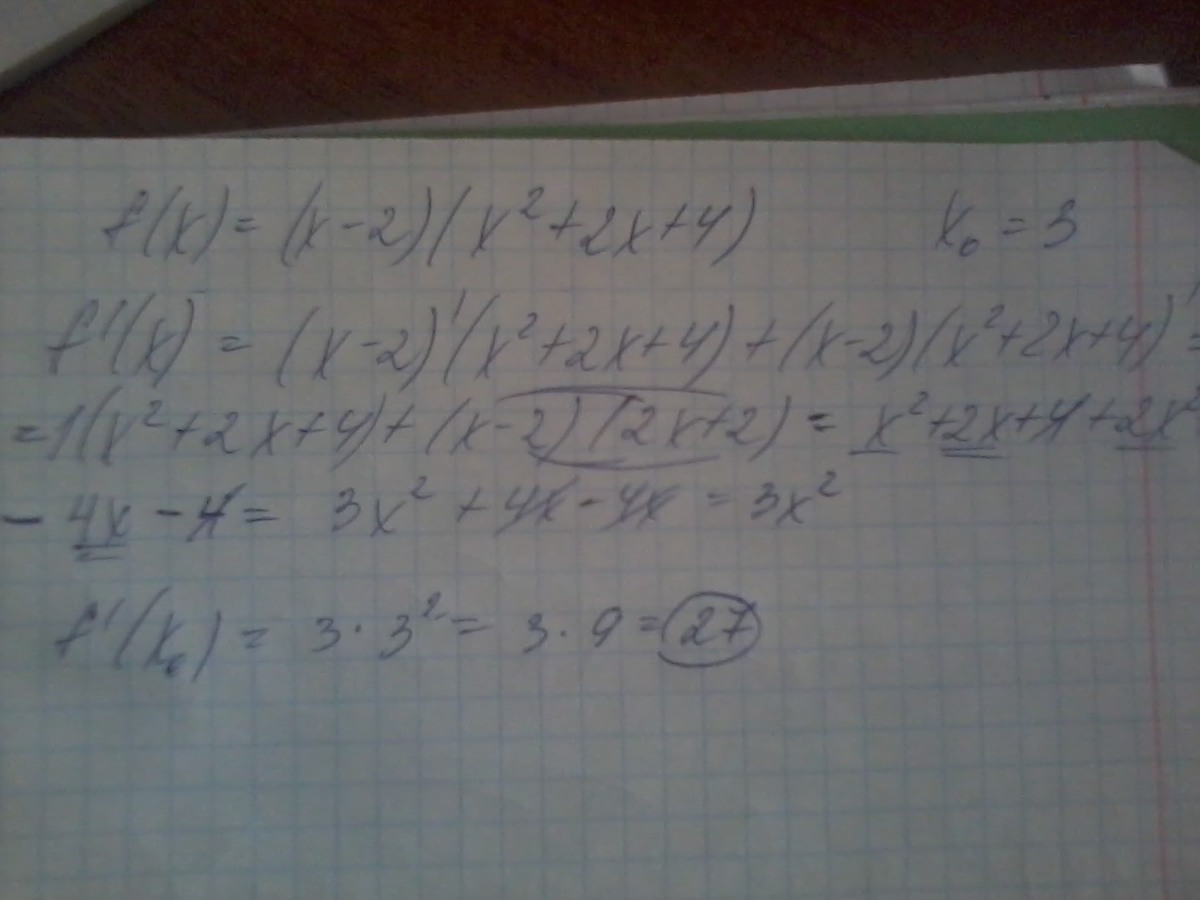 f(x) = (x-2)(x²+2x+4) x₀ = 3
f'(x) = (x-2)'(x²+2x+4)+(x-2)(x²+2x+4)' =
=1(x²+2x+4)+(x-2)(2x+2) = x²+2x+4+2x²
- 4x - 4 = 3x² + 4x - 4x = 3x²
f'(x₀) = 3·3² = 3·9 = 27